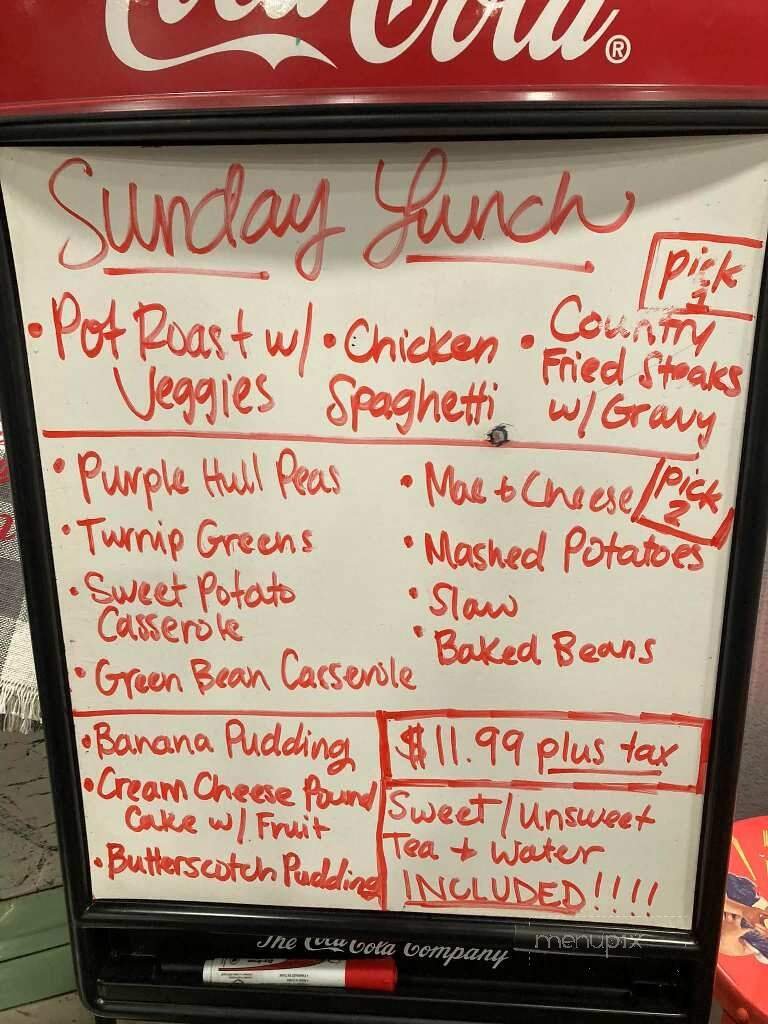 Coca-Cola®
Sunday Lunch
Pick
1
• Pot Roast w/
Veggies
• Chicken
Spaghetti
• Country
Fried Steaks
w/ Gravy
Pick
2
• Purple Hull Peas
• Turnip Greens
• Sweet Potato
Casserole
• Green Bean Casserole
• Mac & Cheese
• Mashed Potatoes
• Slaw
• Baked Beans
• Banana Pudding
• Cream Cheese Pound
Cake w/ Fruit
• Butterscotch Pudding
$11.99 plus tax
Sweet/Unsweet
Tea + Water
INCLUDED!!!!
The Coca-Cola Company
menupix